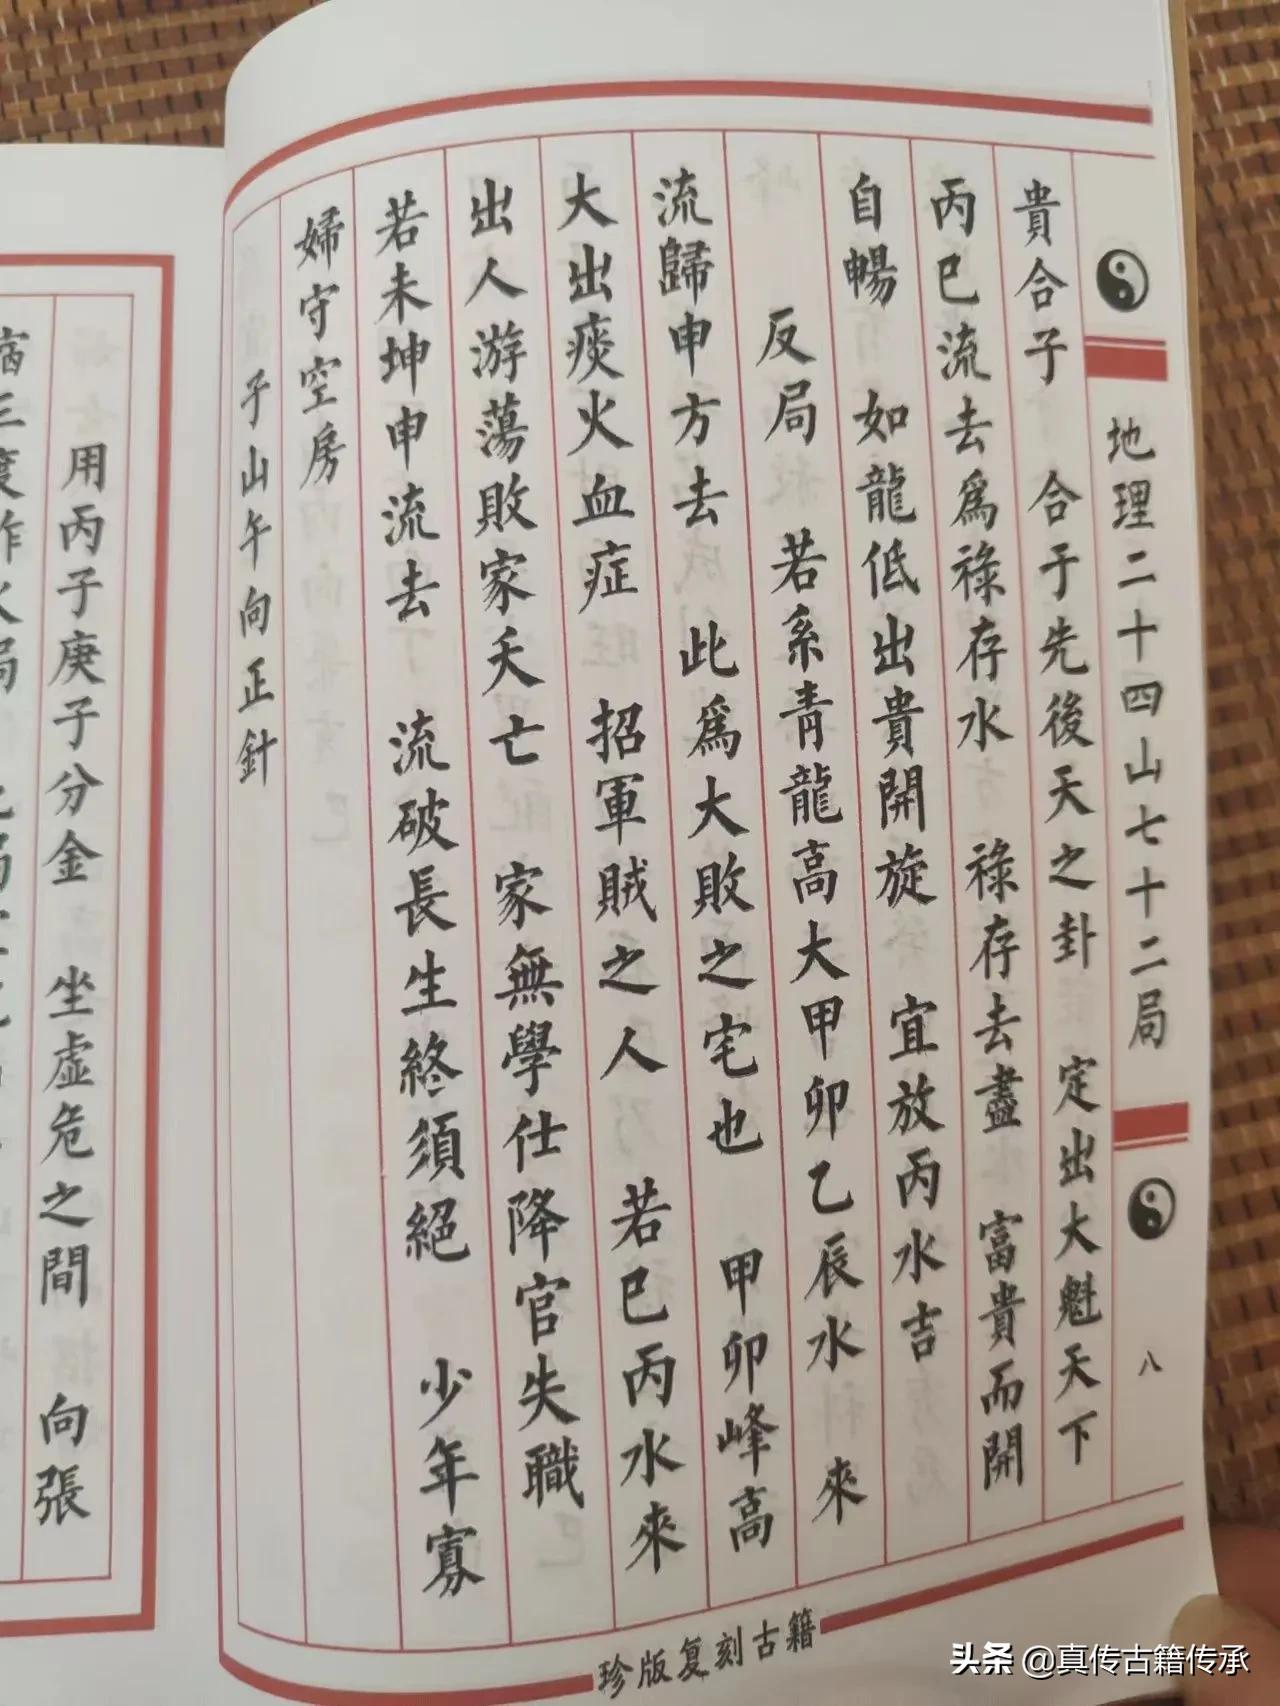 地理二十四山七十二局
八
貴合子　合于先後天之卦　定出大魁天下
丙巳流去為祿存水　祿存去盡　富貴而開
自暢　如龍低出貴開旋　宜放丙水吉
反局　若系青龍高大甲卯乙辰水　來
流歸申方去　此為大敗之宅也　甲卯峰高
大出痰火血症　招軍賊之人　若巳丙水來
出人游蕩敗家夭亡　家無學仕降官失職
若未坤申流去　流破長生終須絕　少年寡
婦守空房
子山午向正針
珍版复刻古籍
用丙子庚子分金　坐虛危之間　向張
宿三度
头条 @真传古籍传承